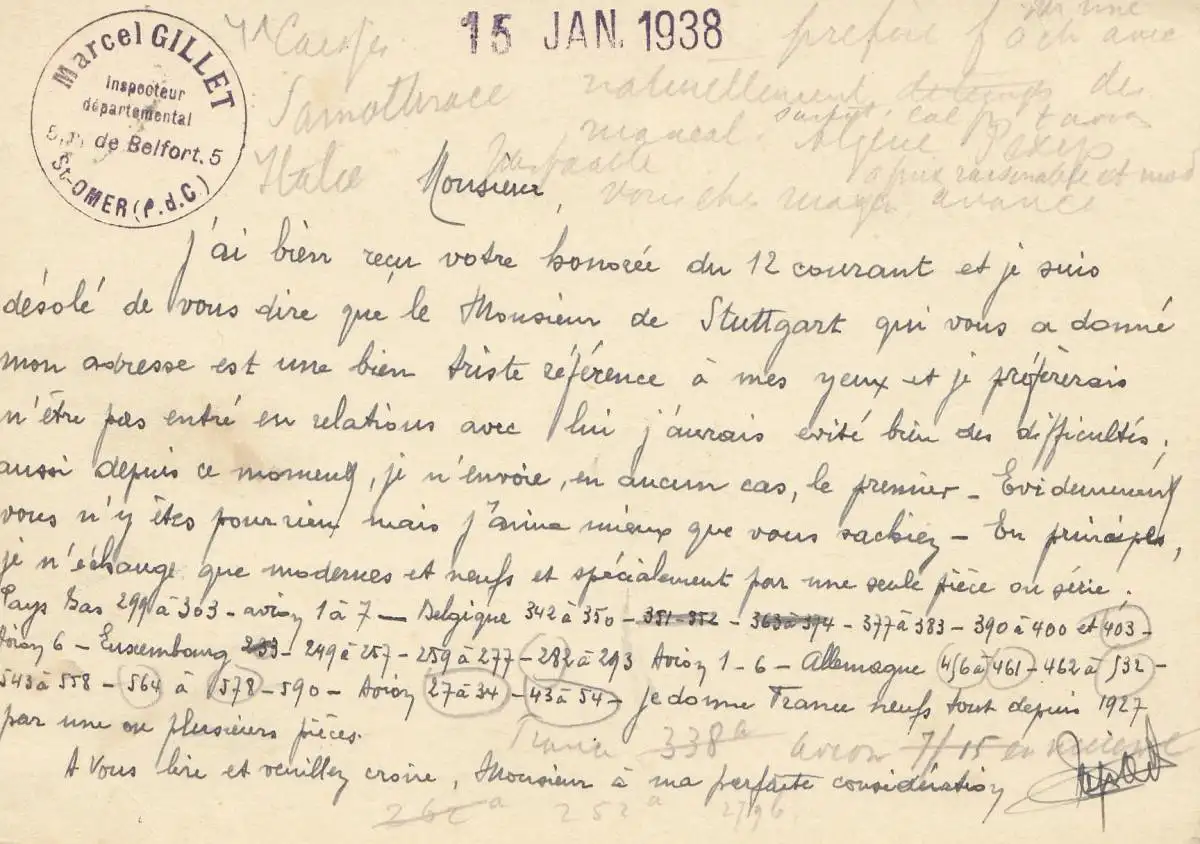 Marcel GILLET
Inspecteur
départemental
de Belfort. 5
St-OMER (P.d.C.)
15 JAN. 1938
Samothrace
naturellement des
Algérie
Italie
vous avance
Monsieur,
J'ai bien reçu votre honorée du 12 courant et je suis
désolé de vous dire que le Monsieur de Stuttgart qui vous a donné
mon adresse est une bien triste référence à mes yeux et je préfèrerais
n'être pas entré en relations avec lui j'aurais evité bien des difficultés,
aussi depuis ce moment, je n'envoie, en aucun cas, le premier - Evidemment
vous n'y êtes pour rien mais j'aime mieux que vous sachiez - En principe,
je n'échange que modernes et neufs et spécialement par une seule pièce ou série.
Pays Bas 299 à 303 - avion 1 à 7 — Belgique 342 à 350 - 351-352 - 363 à 374 - 377 à 383 - 390 à 400 et 403 -
Avion 6 - Luxembourg 233 - 249 à 257 - 259 à 277 - 282 à 293 Avion 1 - 6 - Allemagne 456 à 461 - 462 à 532 -
543 à 558 - 564 à 578 - 590 - Avion 27 à 34 - 43 à 54 - je donne France neufs tout depuis 1927
par une ou plusieurs pièces.
France 338a avion 7/15
A vous lire et veuillez croire, Monsieur à ma parfaite considération
262a 252a